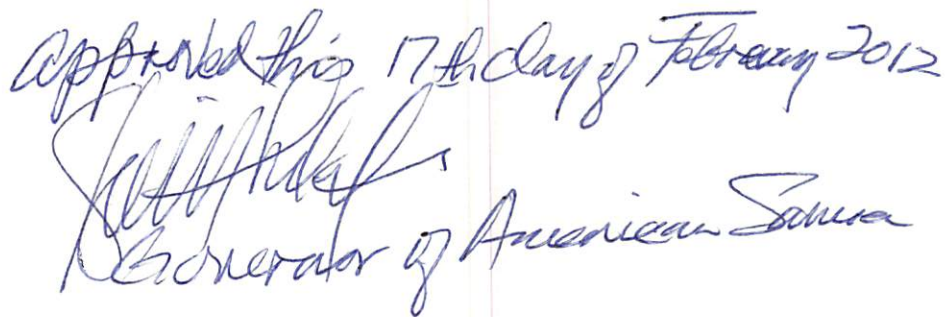 approved this 17th day of February 2012
Governor of American Samoa